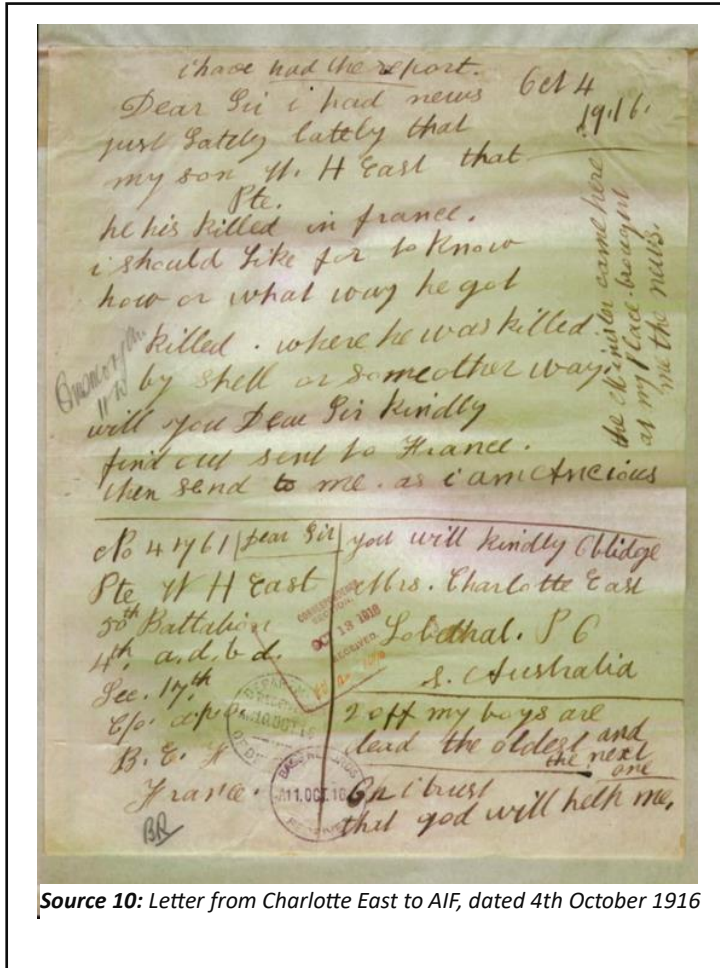 i have had the report.
Oct 4
1916.
Dear Sir i had news
just Lately lately that
my son W. H East that
Pte.
he his killed in france.
i should Like for to Know
how or what way he got
killed. where he was killed
by shell or someother way.
will you Dear Sir Kindly
find out sent to France.
then send to me. as i am Ancious
the Minister came here
at my Place brought
me the news.
No 4761
Pte W H East
50th Battalion
4th. a.d.b.d.
Sec. 17.th
C/o.
B. E. F
France.
BR
Dear Sir
you will kindly Oblidge
Mrs. Charlotte East
Lobethal. P O
S. Australia
2 off my boys are
dead the oldest and
the next
one
Oh i trust
that god will help me.
CORRESPONDENCE
SECTION
OCT 13 1916
RECEIVED
10 OCT 16
BASE RECORDS
11. OCT. 16
Source 10: Letter from Charlotte East to AIF, dated 4th October 1916